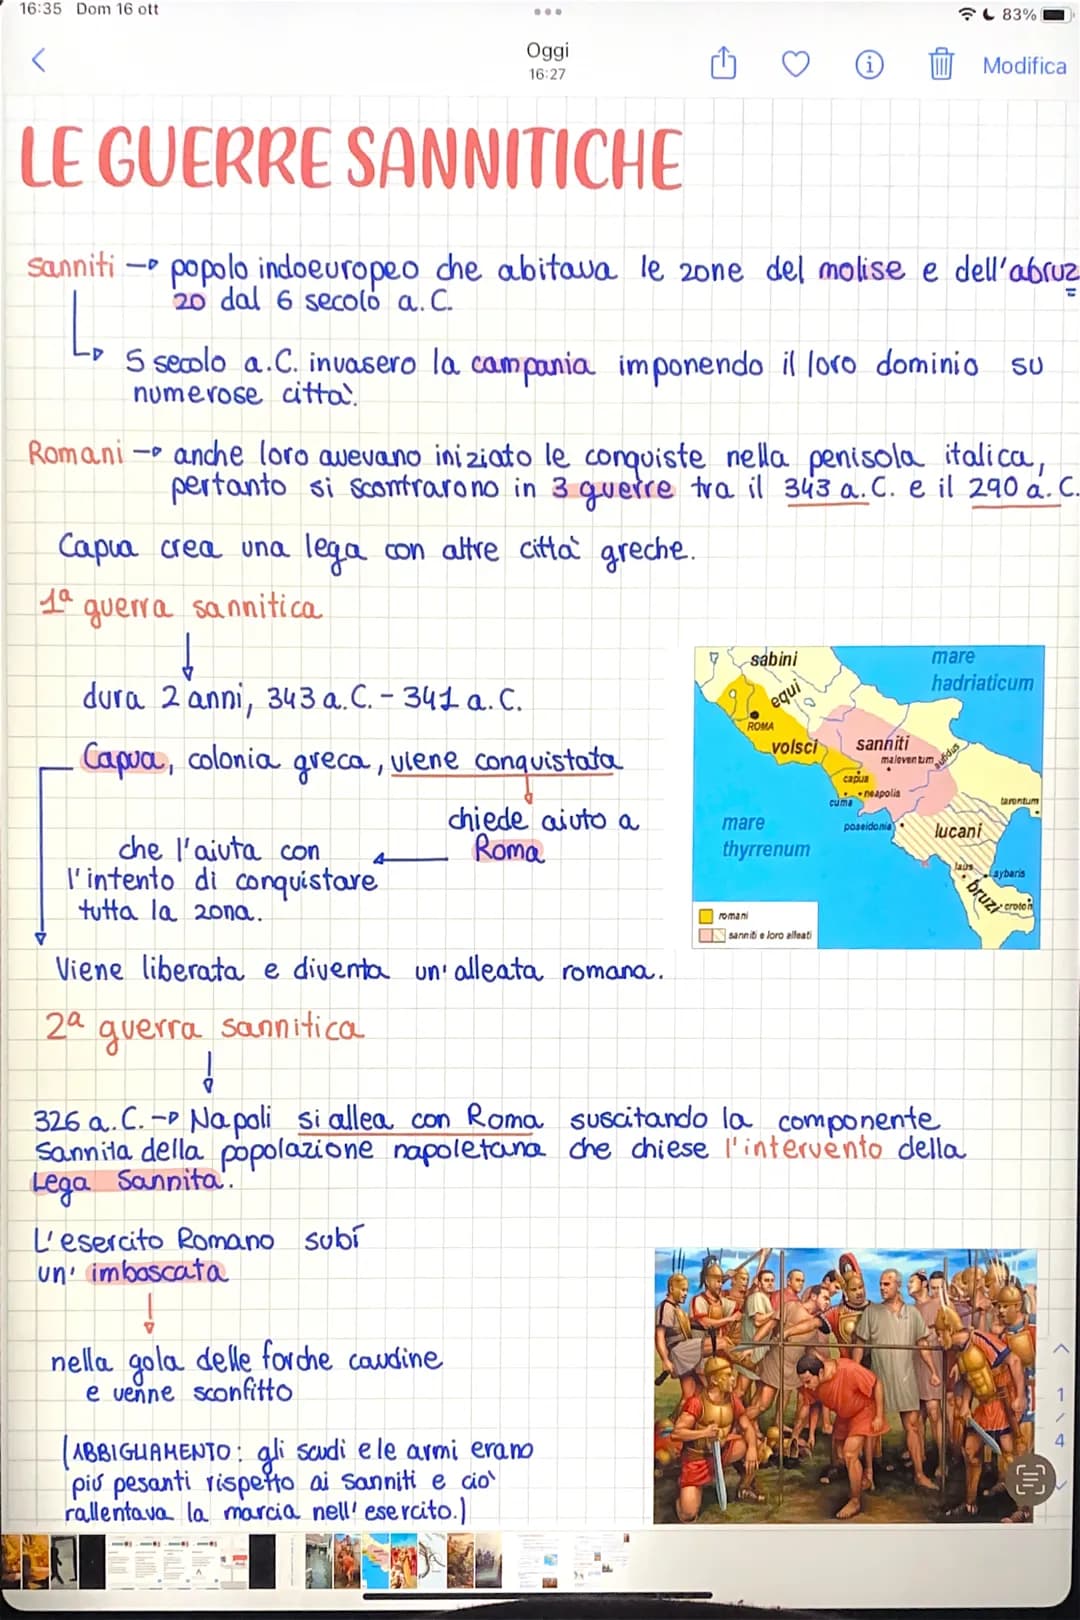 16:35 Dom 16 ott
83%
Oggi
16:27
Modifica
LE GUERRE SANNITICHE
sanniti → popolo indoeuropeo che abitava le zone del molise e dell'abruz
zo dal 6 secolo a.C.
5 secolo a.C. invasero la campania imponendo il loro dominio su
numerose città.
Romani → anche loro avevano iniziato le conquiste nella penisola italica,
pertanto si scontrarono in 3 guerre tra il 343 a.C. e il 290 a.C.
Capua crea una lega con altre città greche.
1ª guerra sannitica
dura 2 anni, 343 a.C. - 341 a.C.
Capua, colonia greca, viene conquistata
chiede aiuto a
Roma
che l'aiuta con
l'intento di conquistare
tutta la zona.
Viene liberata e diventa un'alleata romana.
sabini
mare
hadriaticum
equi
ROMA
volsci
sanniti
maleventum
aufidus
capua
neapolis
cuma
tarentum
mare
thyrrenum
poseidonia
lucani
laus
sybaris
bruzi
croton
romani
sanniti e loro alleati
2ª guerra sannitica
326 a.C. → Napoli si allea con Roma suscitando la componente
Sannita della popolazione napoletana che chiese l'intervento della
Lega Sannita.
L'esercito Romano subí
un' imboscata
nella gola delle forche caudine
e venne sconfitto
(ABBIGLIAMENTO: gli scudi e le armi erano
più pesanti rispetto ai Sanniti e ciò
rallentava la marcia nell' esercito.)
1
/
4